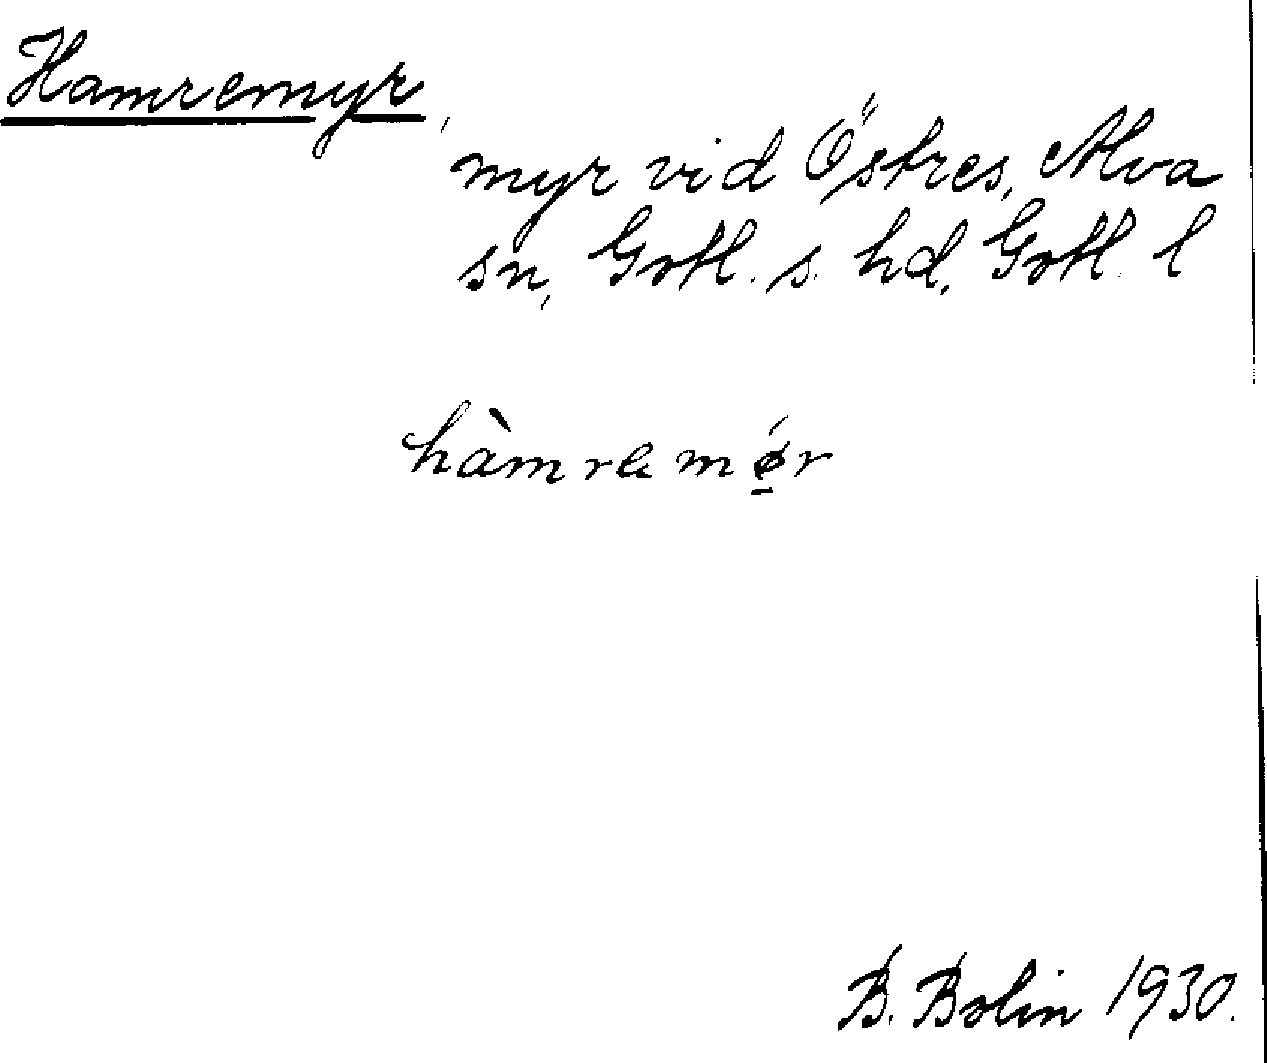 Hamremyr,
myr vid Östres, Alva
sn, Gotl. s. hd, Gotl. l
hàmre mǿ̱r
B. Bolin 1930.